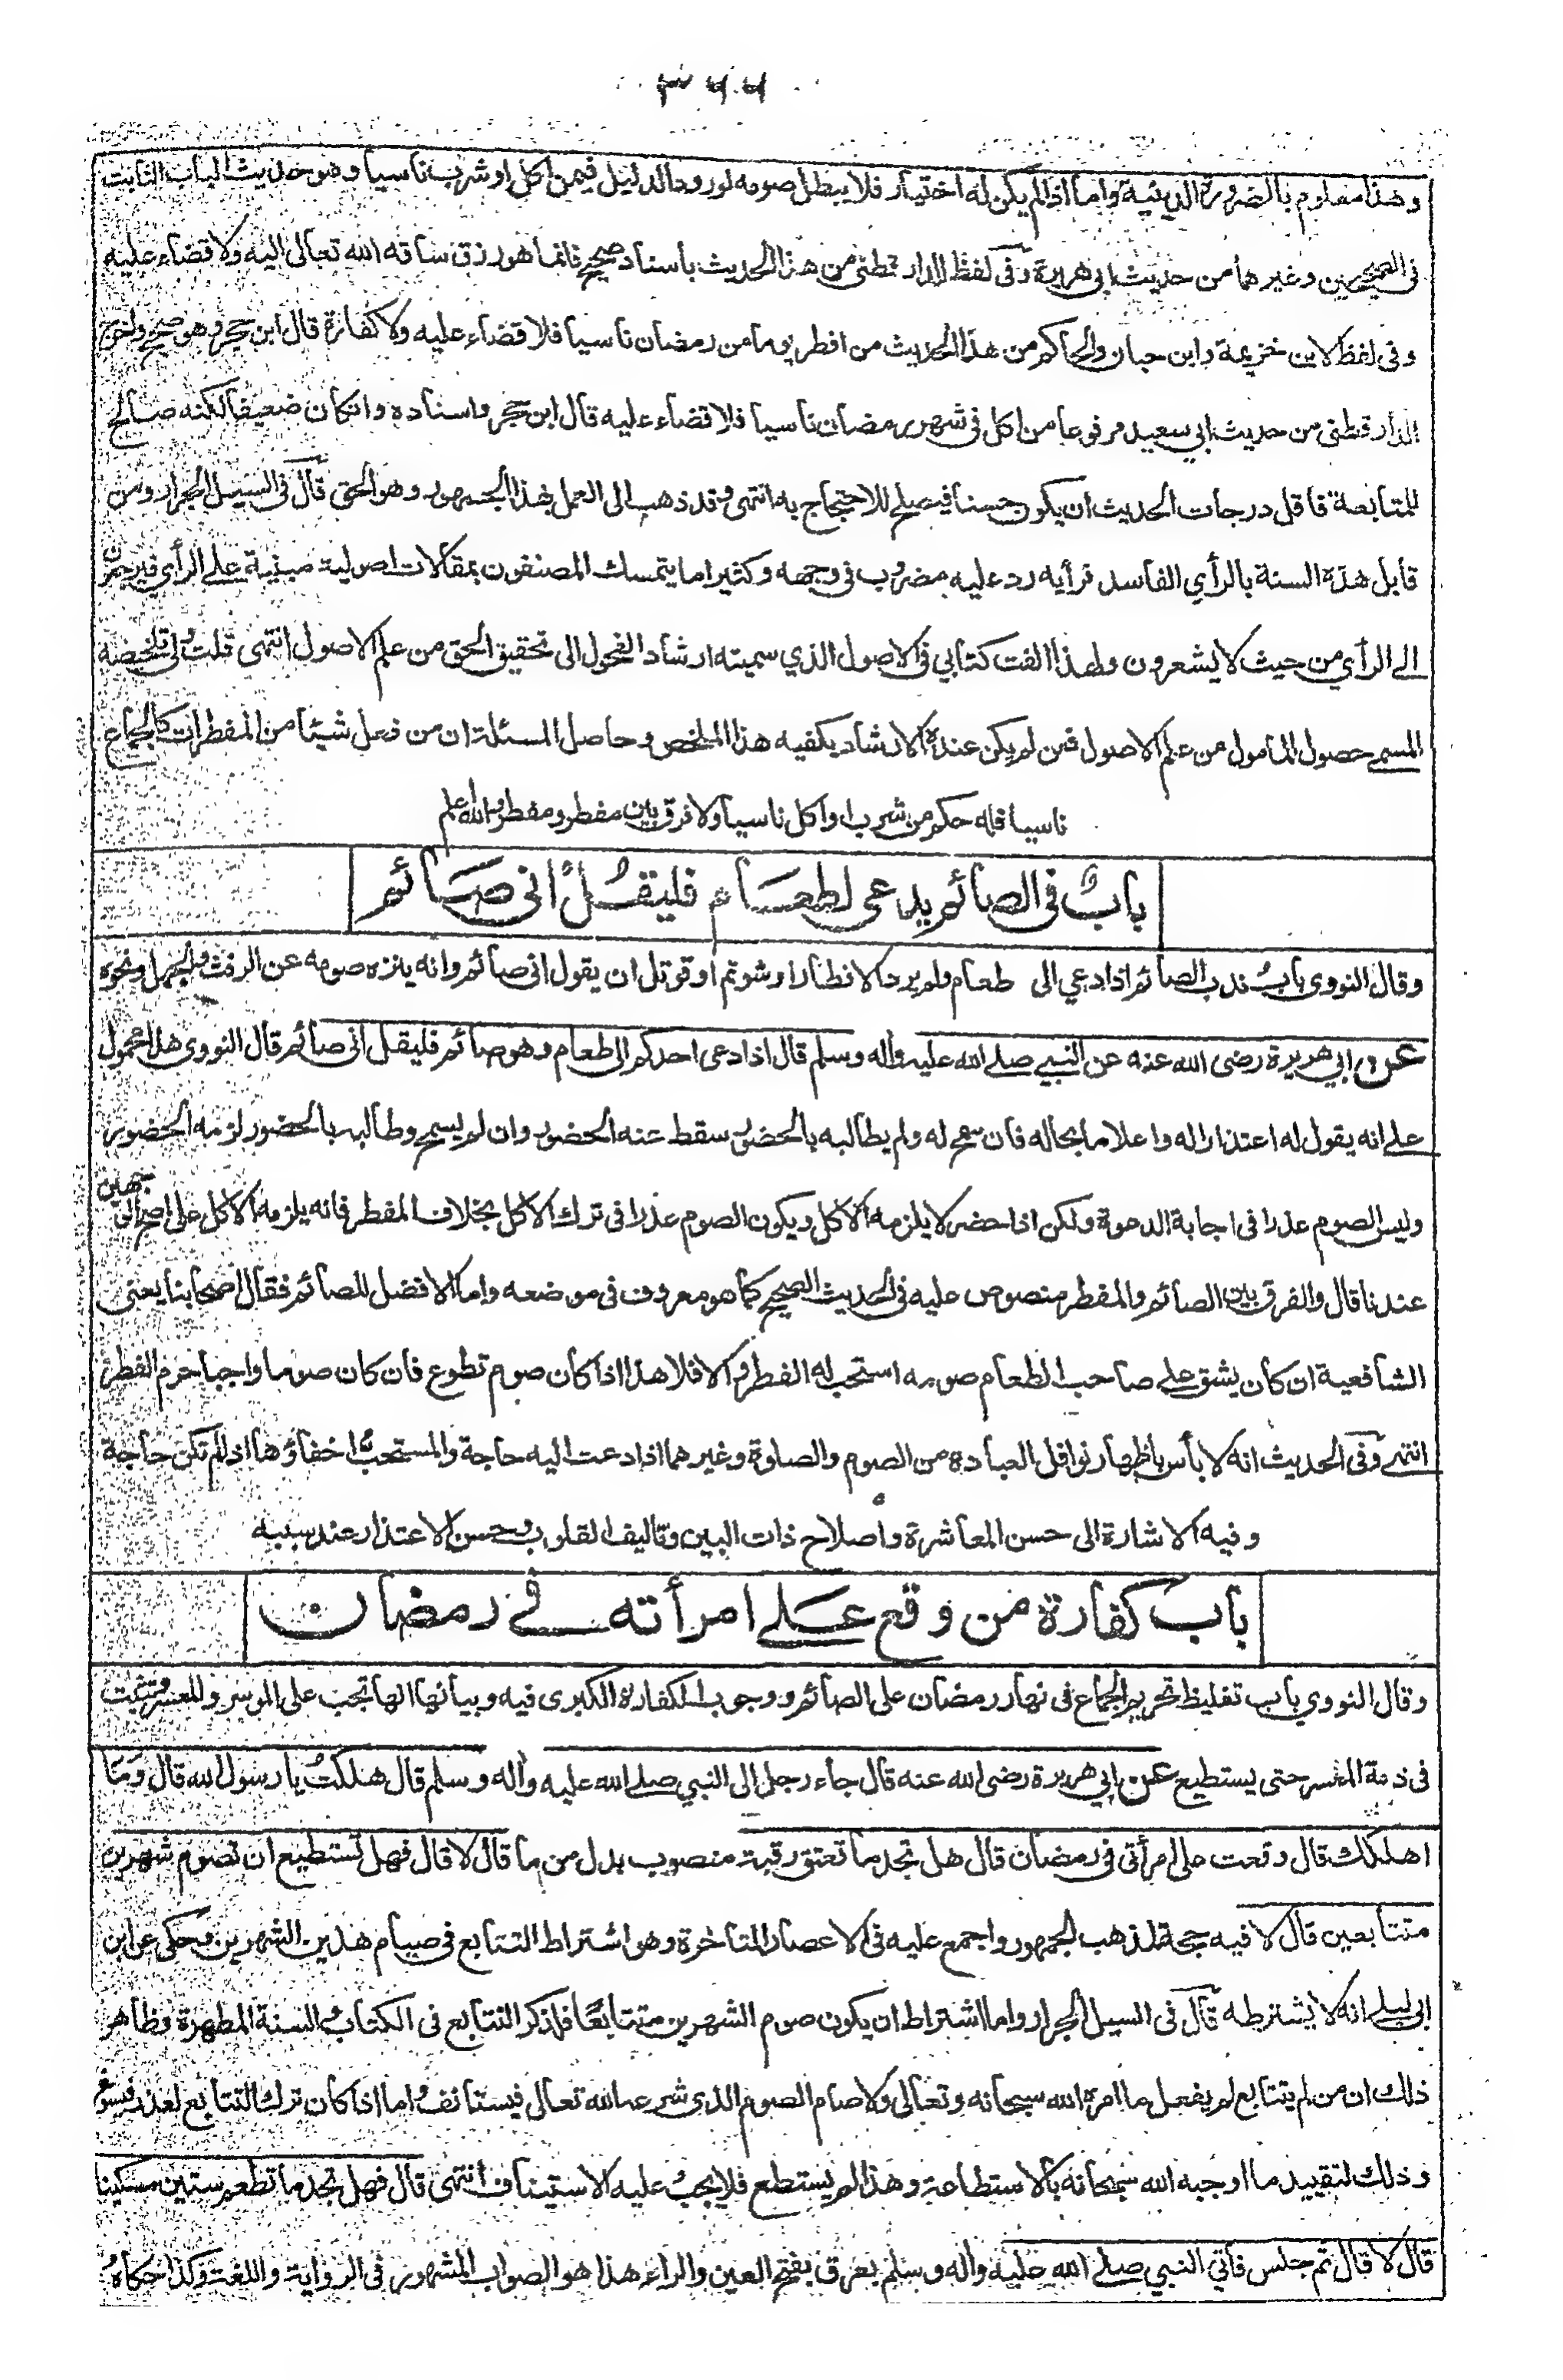 ٣٦٦
وهذا معلوم بالضرورة الدينية واما اذا لم يكن له اختيار فلا يبطل صومه لورود الدليل فيمن اكل او شرب ناسيا وهو حديث الباب الثابت
فى الصحيحين وغيرهما من حديث ابي هريرة وفى لفظ للدارقطنى من هذا الحديث بأسناد صحيح فانما هو رزق ساقه الله تعالى اليه ولا قضاء عليه
وفى لفظ لابن خزيمة وابن حبان والحاكم من هذا الحديث من افطر يوما من رمضان ناسيا فلا قضاء عليه ولا كفارة قال ابن حجر وهو صحيح واخرج
الدارقطنى من حديث ابي سعيد مرفوعا من اكل فى شهر رمضان ناسيا فلا قضاء عليه قال ابن حجر واسناده وانكان ضعيفا لكنه صالح
للمتابعة فاقل درجات الحديث ان يكون حسنا فيصلح للاحتجاج به انتهى وقد ذهب الى العمل بهذا الجمهور وهو الحق قال فى السيل الجرار ومن
قابل هذه السنة بالرأي الفاسد فرأيه رد عليه مضروب فى وجهه وكثيرا ما يتمسك المصنفون بمقالات اصولية مبنية على الرأي فيرجعون
الى الرأي من حيث لا يشعرون ولهذا الفت كتابي فى الاصول الذي سميته ارشاد الفحول الى تحقيق الحق من علم الاصول انتهى قلت ولى تلخيصه
المسمى حصول المامول من علم الاصول فمن لم يكن عنده الارشاد يكفيه هذا الملخص وحاصل المسئلة ان من فعل شيئا من المفطرات كالجماع
ناسيا فله حكم من شرب او اكل ناسيا ولا فرق بين مفطر ومفطر والله اعلم
باب فى الصائم يدعى لطعام فليقل انى صائم
وقال النووى باب ندب الصائم اذا دعي الى طعام ولم يرد الافطار او شوتم او قوتل ان يقول انى صائم وانه ينزه صومه عن الرفث والجهل ونحوه
عن ابي هريرة رضى الله عنه عن النبي صلى الله عليه وآله وسلم قال اذا دعى احدكم الى طعام وهو صائم فليقل انى صائم قال النووى هذا محمول
على انه يقول له اعتذارا له واعلاما بحاله فان سمح له ولم يطالبه بالحضور سقط عنه الحضور وان لم يسمح وطالبه بالحضور لزمه الحضور
وليس الصوم عذرا فى اجابة الدعوة ولكن اذا حضر لا يلزمه الاكل ويكون الصوم عذرا فى ترك الاكل بخلاف المفطر فانه يلزمه الاكل على اصح الوجهين
عندنا قال والفرق بين الصائم والمفطر منصوص عليه فى الحديث الصحيح كما هو معروف فى موضعه واما الافضل للصائم فقال اصحابنا يعنى
الشافعية ان كان يشق على صاحب الطعام صومه استحب له الفطر والا فلا هذا اذا كان صوم تطوع فان كان صوما واجبا حرم الفطر
انتهى وفى الحديث انه لا بأس باظهار نوافل العبادة من الصوم والصلوة وغيرهما اذا دعت اليه حاجة والمستحب اخفاؤها اذا لم تكن حاجة
وفيه الاشارة الى حسن المعاشرة واصلاح ذات البين وتاليف القلوب وحسن الاعتذار عند سببه
باب كفارة من وقع على امرأته فى رمضان
وقال النووي باب تغليظ تحريم الجماع فى نهار رمضان على الصائم ووجوب الكفارة الكبرى فيه وبيانها انها تجب على الموسر والمعسر وتثبت
فى ذمة المعسر حتى يستطيع عن ابي هريرة رضى الله عنه قال جاء رجل الى النبي صلى الله عليه وآله وسلم قال هلكت يا رسول الله قال وما
اهلكك قال وقعت على امرأتى فى رمضان قال هل تجد ما تعتق رقبة منصوب بدل من ما قال لا قال فهل تستطيع ان تصوم شهرين
متتابعين قال لا فيه حجة لمذهب الجمهور واجمع عليه فى الاعصار المتاخرة وهو اشتراط التتابع فى صيام هذين الشهرين وحكى عن ابن
ابي ليلى انه لا يشترطه قال فى السيل الجرار واما اشتراط ان يكون صوم الشهرين متتابعا فلذكر التتابع فى الكتاب والسنة المطهرة وظاهر
ذلك ان من لم يتتابع لم يفعل ما امره الله سبحانه وتعالى ولا صام الصوم الذى شرعه الله تعالى فيستانف واما اذا كان ترك التتابع لعذر فيسوغ
وذلك لتقييد ما اوجبه الله سبحانه بالاستطاعة وهذا لم يستطع فلا يجب عليه الاستيناف انتهى قال فهل تجد ما تطعم ستين مسكينا
قال لا قال ثم جلس فأتي النبي صلى الله عليه وآله وسلم بعرق بفتح العين والراء هذا هو الصواب المشهور فى الرواية واللغة وكذا حكاه